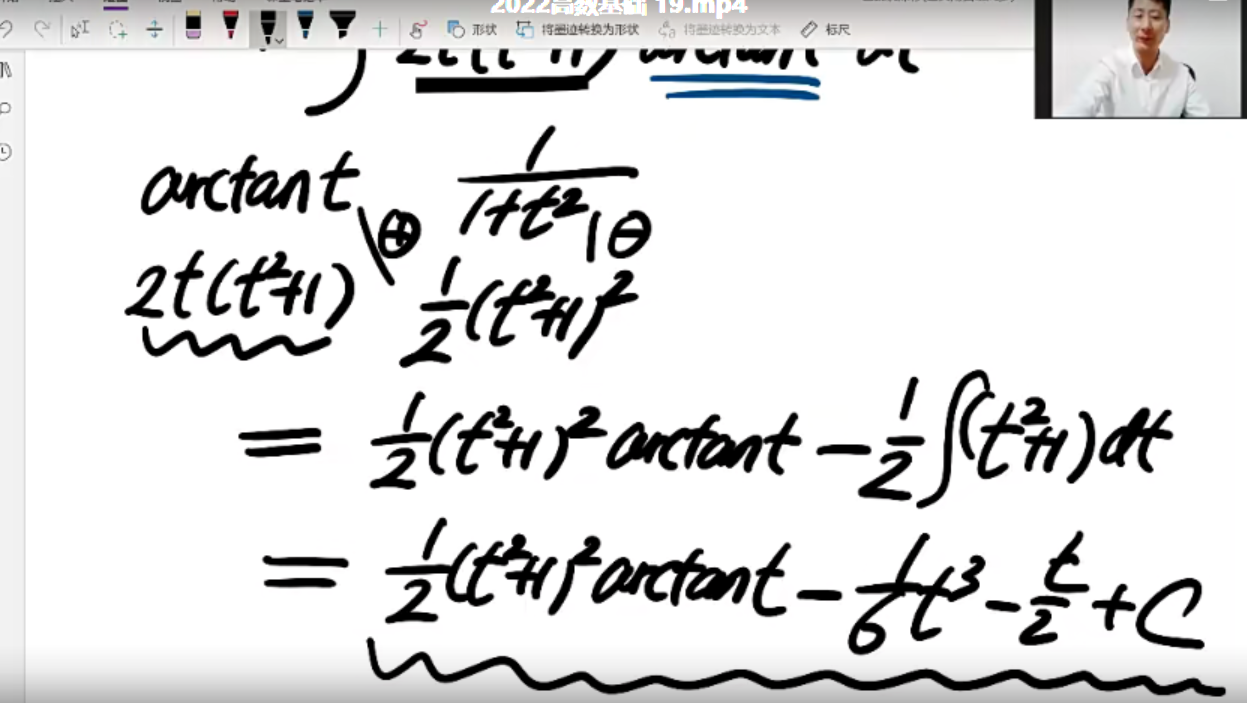 2022高数基础 19.mp4
形状 将墨迹转换为形状 将墨迹转换为文本 标尺
∫ 2t(t²+1) arctant dt
arctant ⊕ 1/(1+t²) ⊖
2t(t²+1) 1/2(t²+1)²
= 1/2(t²+1)² arctant − 1/2∫(t²+1)dt
= 1/2(t²+1)² arctant − 1/6t³ − t/2 + C